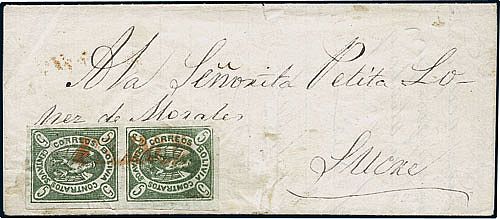 A la Señorita Petita Lo-
pez de Morales
Sucre
5 CORREOS BOLIVIA CONTRATOS 5
5 CORREOS BOLIVIA CONTRATOS 5